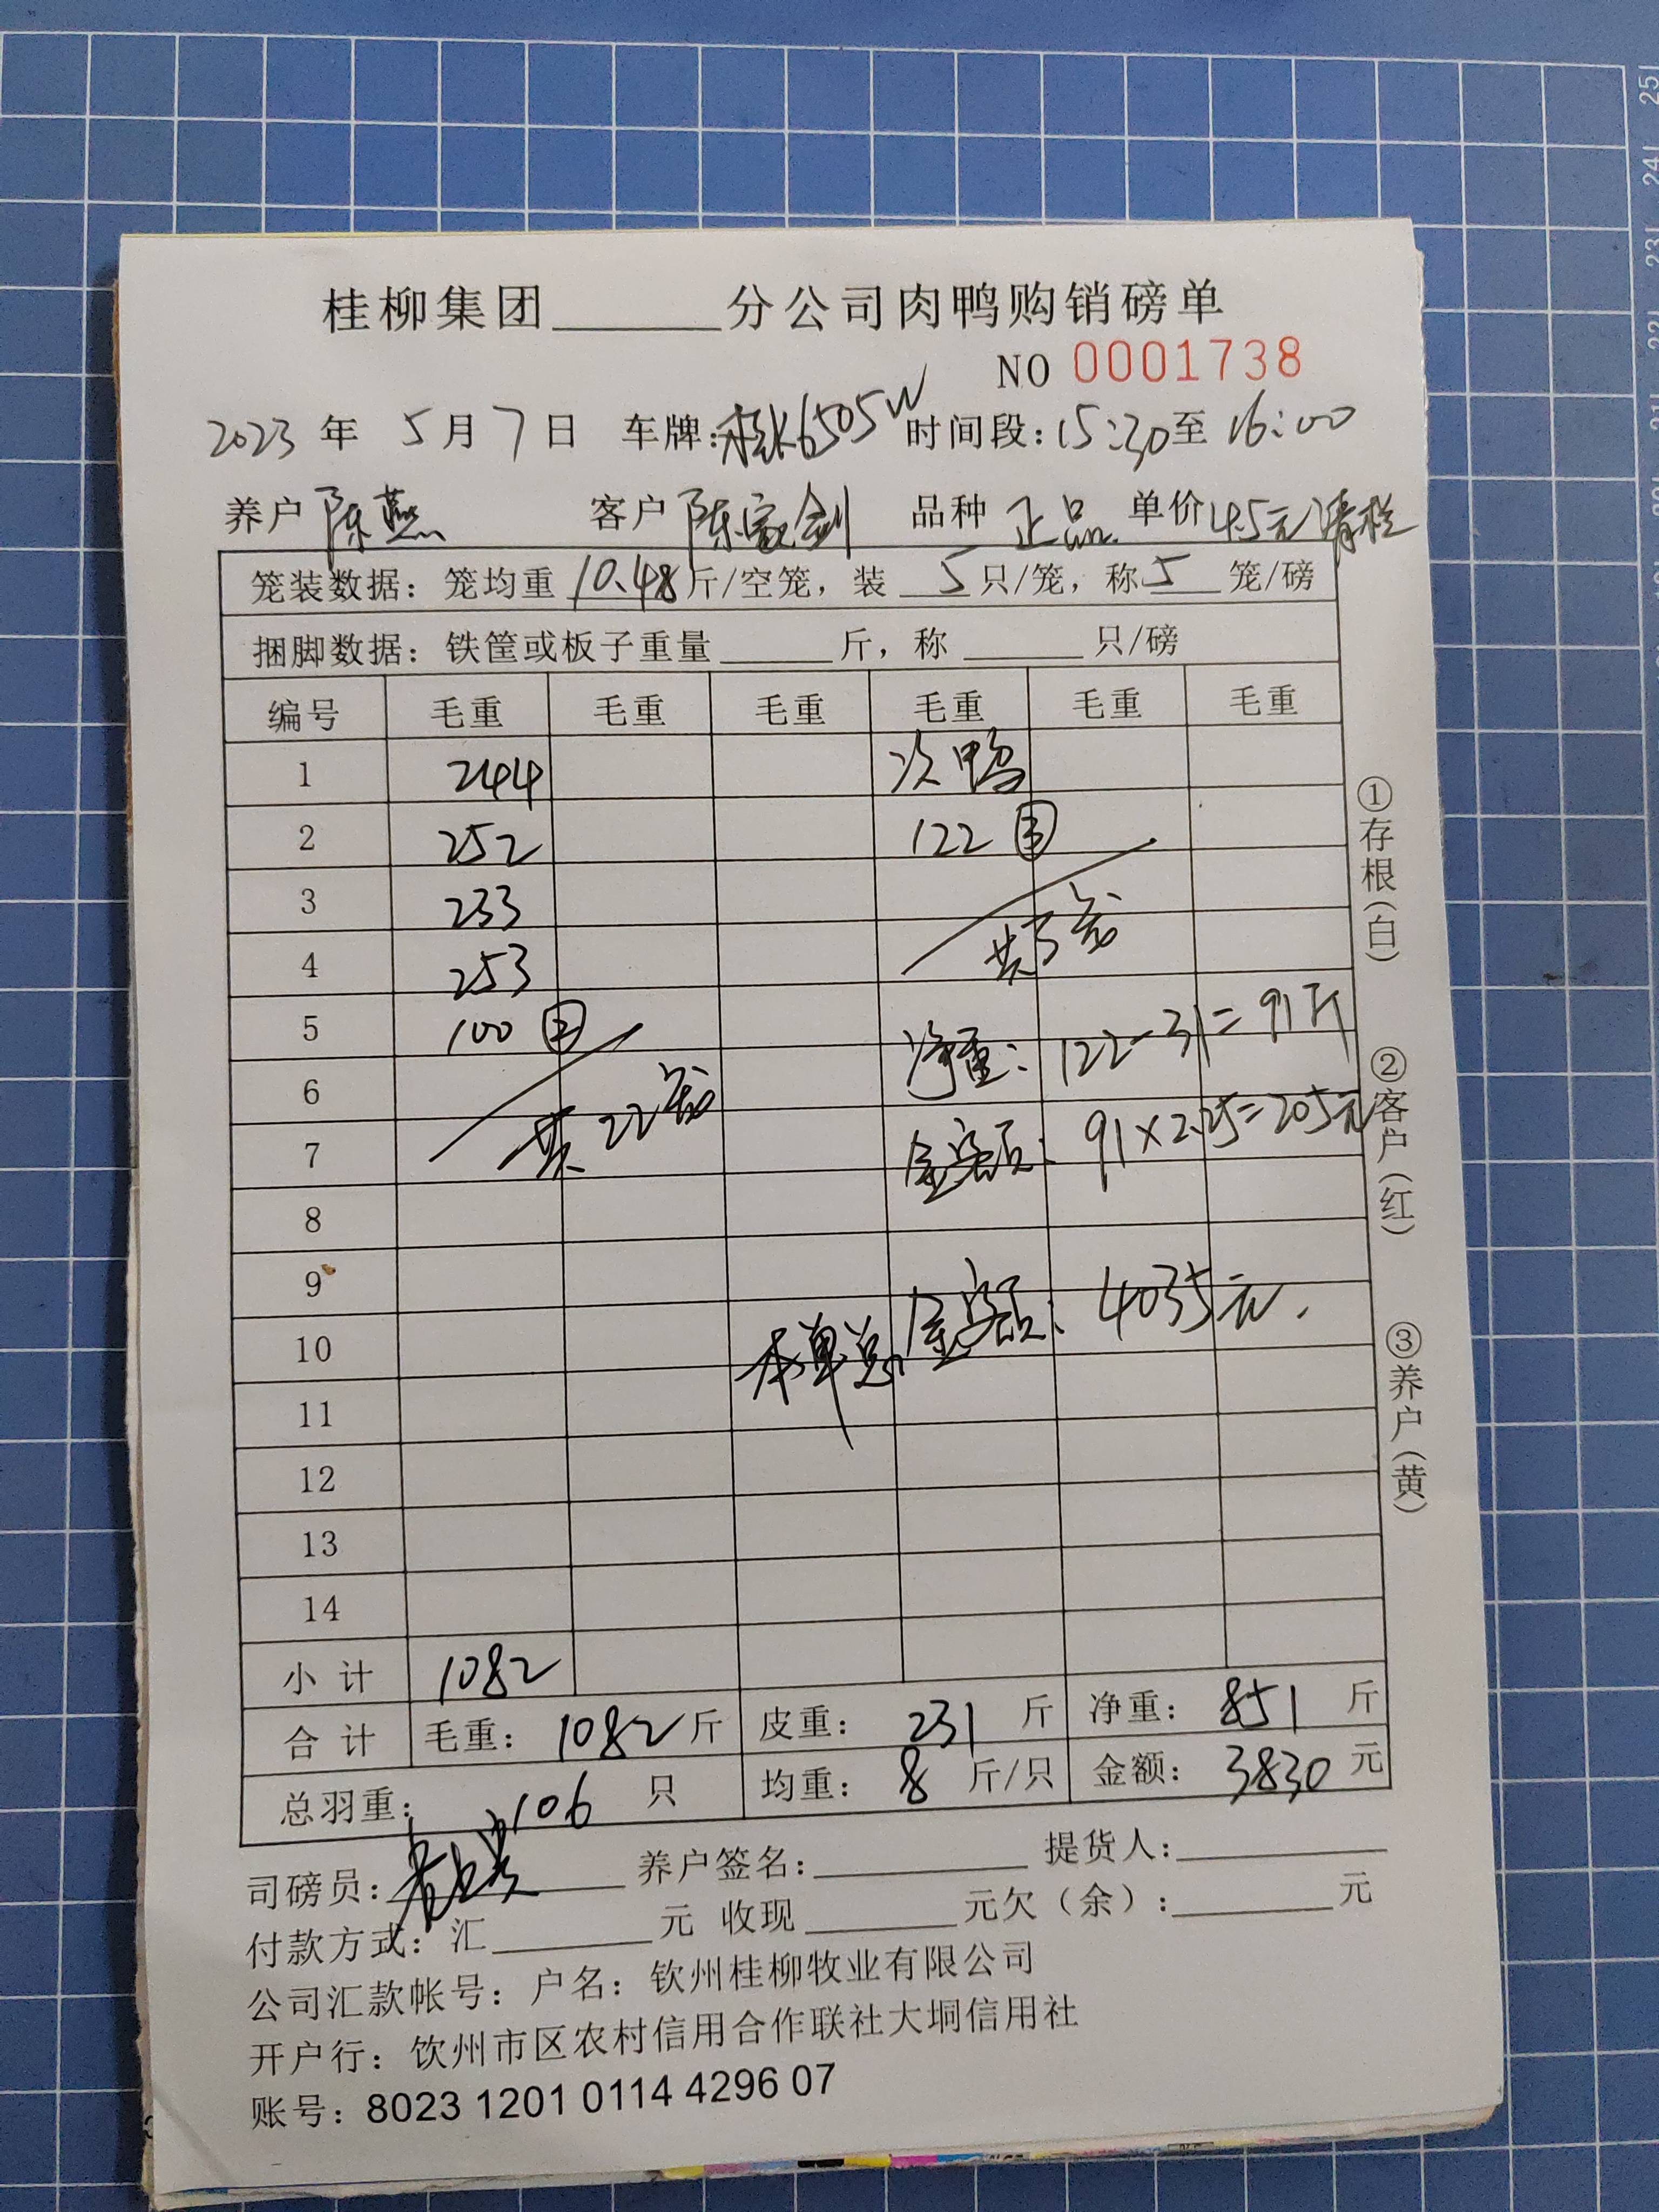 桂柳集团______分公司肉鸭购销磅单
NO 0001738
2023 年 5 月 7 日 车牌:桂K6505W 时间段:15:30至 16:00
养户 陈燕 客户 陈家剑 品种 正品 单价 4.5元/清栏
笼装数据:笼均重 10.48 斤/空笼,装 5 只/笼,称 5 笼/磅
捆脚数据:铁筐或板子重量______斤,称______只/磅
编号 毛重 毛重 毛重 毛重 毛重 毛重
1 244 次鸭
2 252 122 ③
3 233
共3笼
4 253
5 100 ②
净重:122-31=91斤
6
共22笼
7
金额:91×2.25=205元
8
9
10
本单总金额:4035元.
11
12
13
14
小计 1082
合计 毛重:1082斤 皮重:231 斤 净重:851 斤
总羽重:106 只 均重:8 斤/只 金额:3830 元
司磅员: 养户签名:______ 提货人:______
付款方式:汇______元 收现______元欠(余):______元
公司汇款帐号:户名:钦州桂柳牧业有限公司
开户行:钦州市区农村信用合作联社大垌信用社
账号:8023 1201 0114 4296 07
①存根(白)
②客户(红)
③养户(黄)
25
24
23
22
21